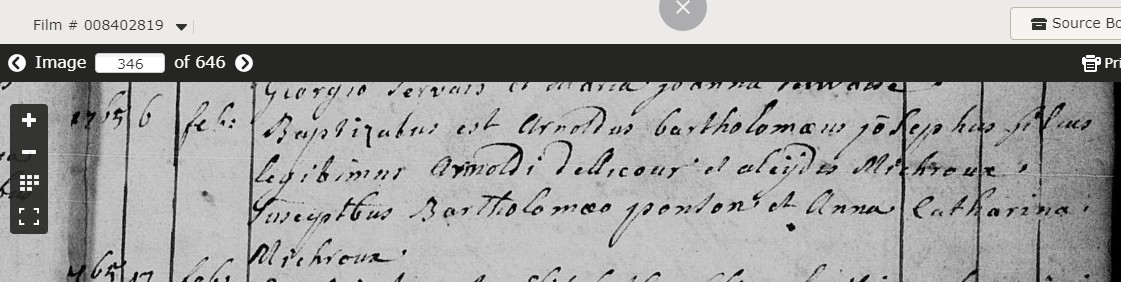 Film # 008402819
Source Bo
Image 346 of 646
Pri
Georgio Servais et maria joanna
1765 6 febr Baptizatus est Arnoldus bartholomæus josephus filius
legitimus Arnoldi dellicour et aleijdis Michroux
susceptibus Bartholomæo ponson et Anna Catharina
Michroux
1765 17 febr